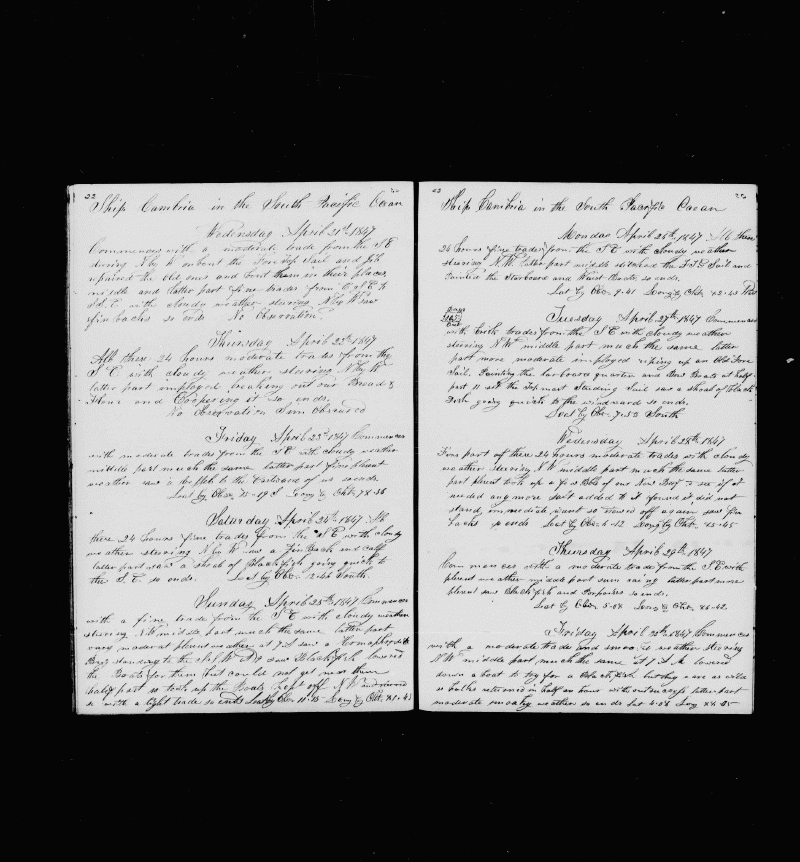 22
Ship Cambria in the South Pacific Ocean
Wednesday April 21st 1847
Commences with a moderate trade from the S E
stering N by W unbent the Fore Top Sail and Jib
repaired the old ones and bent them in their places
middle and latter part fine trades from E S E to
S E with cloudy weather stering N by W saw
finbacks so ends No Observation
Thursday April 22nd 1847
All these 24 hours moderate trades from the
S E with cloudy weather stering N by W
latter part imployed breaking out our Bread &
Flour and Coopering it so ends
No Observation Sun Obscured
Friday April 23rd 1847 Commences
with moderate trades from the S E with cloudy weather
middle part much the same latter part fine plesent
weather saw a to the of us so ends
Lat by Obs Long by Chr 78-36
Saturday April 24th 1847 All
these 24 hours fine trades from the S E with cloudy
weather stering N by W saw a Finback and calf
latter part saw a shoal of Blackfish going quick to
the S E so ends Lat by Obs 12-46 South
Sunday April 25th 1847 Commences
with a fine trade from the S E with cloudy weather
stering NW middle part much the same latter part
very moderat plesent weather at 7 A saw a Hermaphrodite
Brig standing to the saw Blackfish lowered
the Boats for them but could not get near them
half part 10 took up the Boats kept off N W
so with a light trade so ends Lat by Obs 11-15 Long by Chr 81-43
Ship Cambria in the South Pacific Ocean
Monday April 26th 1847 All these
24 hours fine trades from the S E with cloudy weather
stering N W latter part middle stitched the F T G Sail and
painted the Starboard and Waist Boats so ends
Lat by Obs 9-41 Long by Chr 82-43
Tuesday April 27th 1847 Commences
with brisk trades from the S E with cloudy weather
stering N W middle part much the same latter
part more moderate imployed riping up an Old Fore
Sail. Painting the larboard quarter and Bow Boats at half
past 11 set the Topmast Studing Sail saw a shoal of Black
Fish going quick to the windward so ends
Lat by Obs 7-53 South
Wednesday April 28th 1847
First part of these 24 hours moderate trades with cloudy
weather stering N W middle part much the same latter
part plesent took up a few Bbls of our New Beef to see if it
needed any more salt added to it found it did not
stand immediate want so stowed off again saw fin
backs so ends Lat by Obs 6-12 Long by Chr 85-45
Thursday April 29th 1847
Commences with a moderate trade from the S E with
plesent weather middle part some raing latter part more
plesent saw Blackfish and Porpoises so ends
Lat by Obs 5-08 Long by Chr 86-42
Friday April 30th 1847 Commences
with a moderate trade and smoaky weather stering
N W middle part much the same at 7 A M lowered
down a boat to try for a Blackfish but they are as wild
as hawks returned in half an hour without success latter part
moderate smoaky weather so ends Lat 4-06 Long 88-05